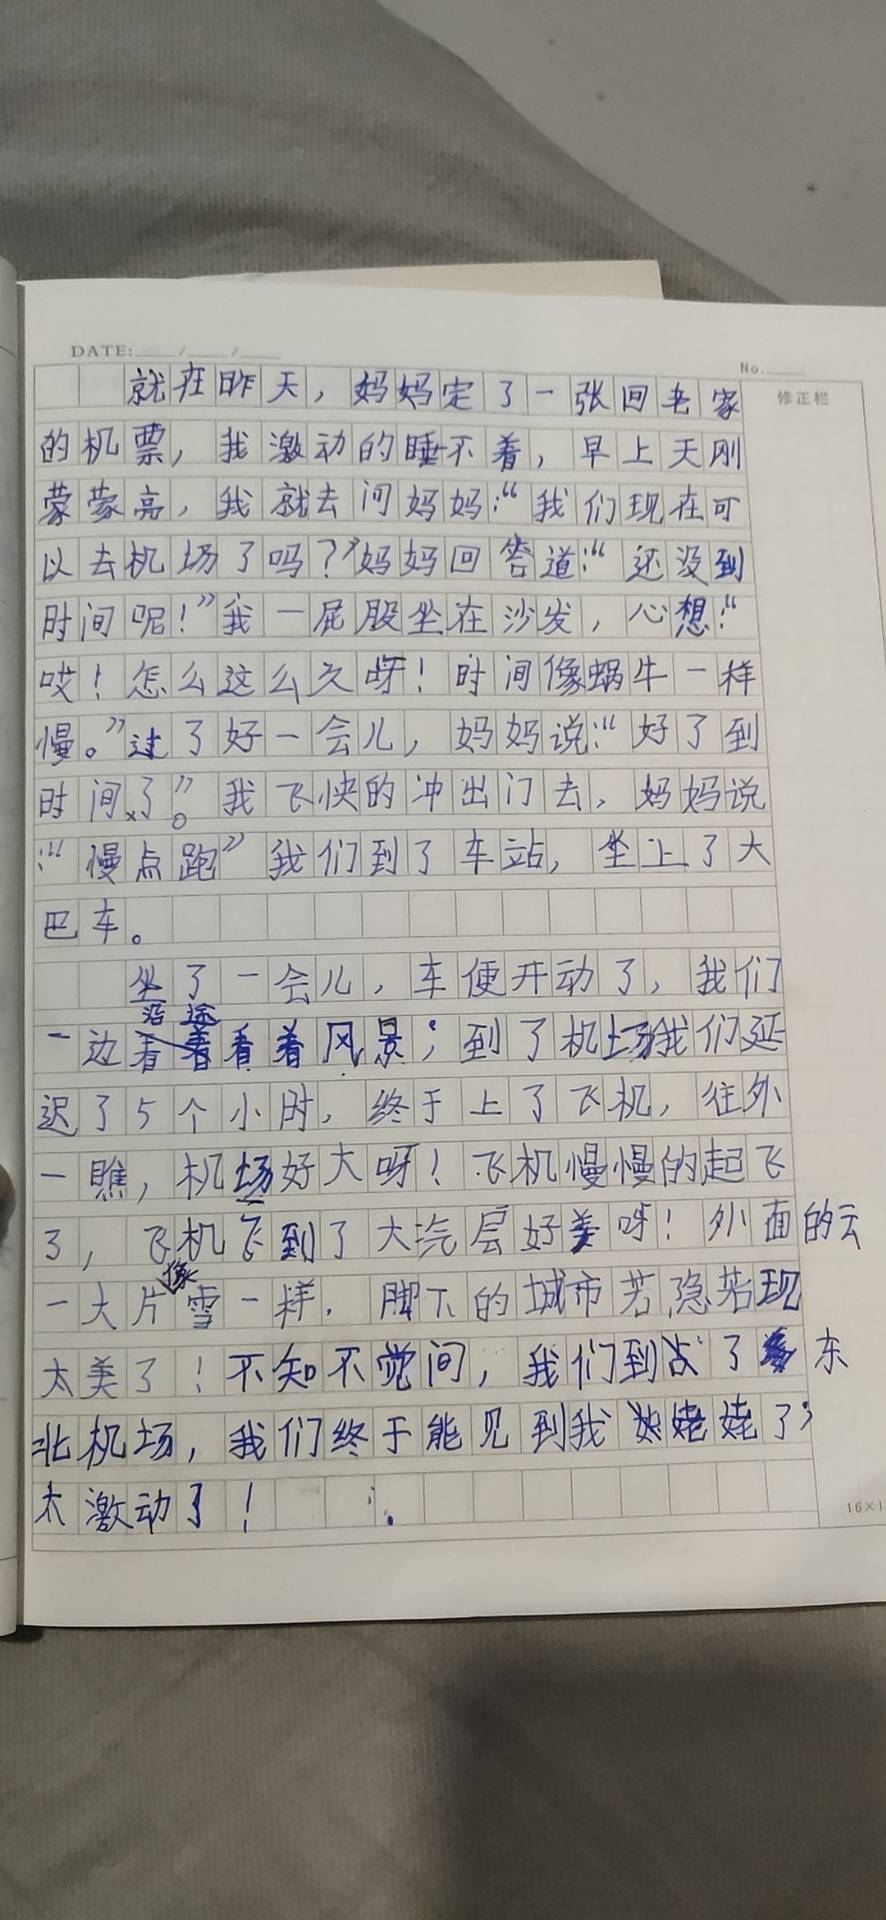 DATE: / /
No.
修正栏
就在昨天，妈妈定了一张回老家
的机票，我激动的睡不着，早上天刚
蒙蒙亮，我就去问妈妈：“我们现在可
以去机场了吗？”妈妈回答道：“还没到
时间呢！”我一屁股坐在沙发，心想：“
哎！怎么这么久呀！时间像蜗牛一样
慢。”过了好一会儿，妈妈说：“好了到
时间了”。我飞快的冲出门去，妈妈说
：“慢点跑”我们到了车站，坐上了大
巴车。
坐了一会儿，车便开动了，我们
一边沿途看着风景；到了机场我们延
迟了5个小时，终于上了飞机，往外
一瞧，机场好大呀！飞机慢慢的起飞
了，飞机飞到了大汽层好美呀！外面的云
一大片像雪一样，脚下的城市若隐若现
太美了！不知不觉间，我们到达了东
北机场，我们终于能见到我姥姥了，
太激动了！
16×1